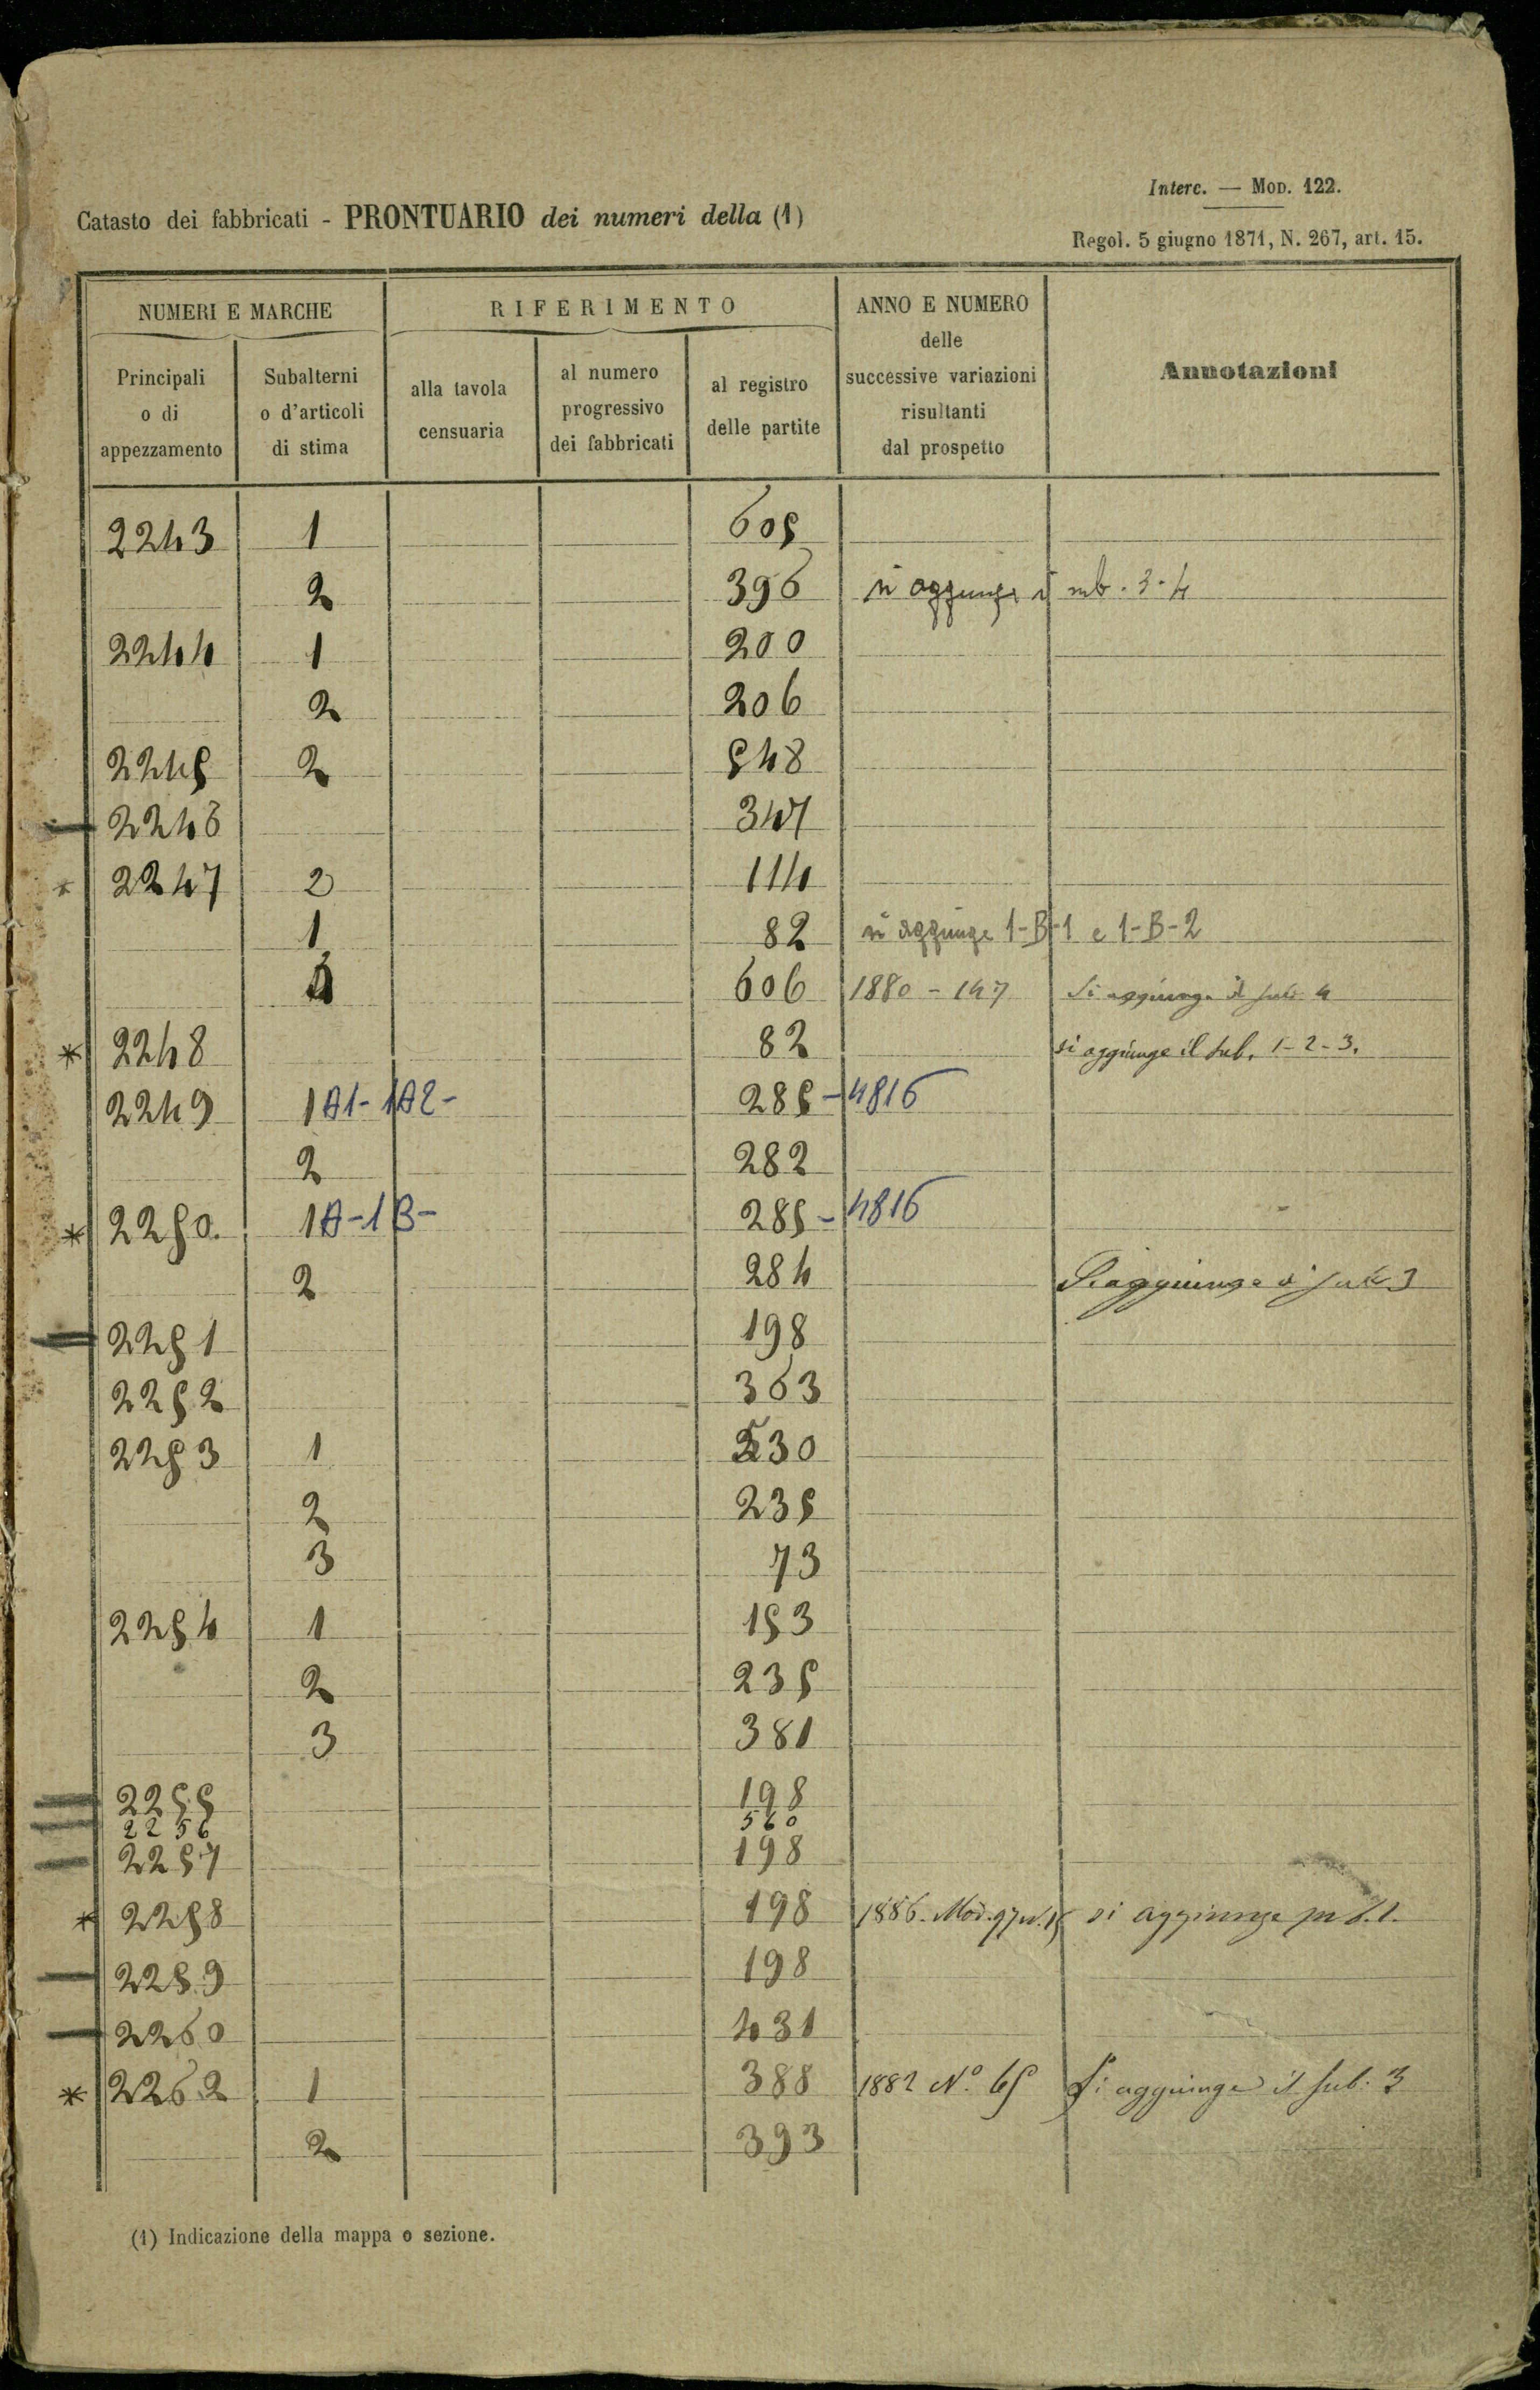 Interc. — MOD. 122.
Catasto dei fabbricati - PRONTUARIO dei numeri della (1)
Regol. 5 giugno 1871, N. 267, art. 15.
NUMERI E MARCHE
RIFERIMENTO
ANNO E NUMERO
delle
successive variazioni
risultanti
dal prospetto
Annotazioni
Principali
o di
appezzamento
Subalterni
o d'articoli
di stima
alla tavola
censuaria
al numero
progressivo
dei fabbricati
al registro
delle partite
2243 1 605
2 396 si aggiunge i sub. 3-4
2244 1 200
2 206
2245 2 548
2246 347
* 2247 2 114
1 82 si aggiunge 1-B-1 e 1-B-2
4 606 1880 - 147 Si aggiunge il sub 4
* 2248 82 si aggiunge il sub. 1-2-3.
2249 1A1-1A2- 285-4816
2 282
* 2250. 1A-1B- 285-4816
2 284 Si aggiunge il sub 3
2251 198
2252 363
2253 1 530
2 235
3 73
2254 1 153
2 235
3 381
2255 198
2256 560
2257 198
* 2258 198 1886. Mod. 97 si aggiunge
2259 198
2260 431
* 2262 1 388 1882 N.° 65 Si aggiunge il sub. 3
2 393
(1) Indicazione della mappa o sezione.